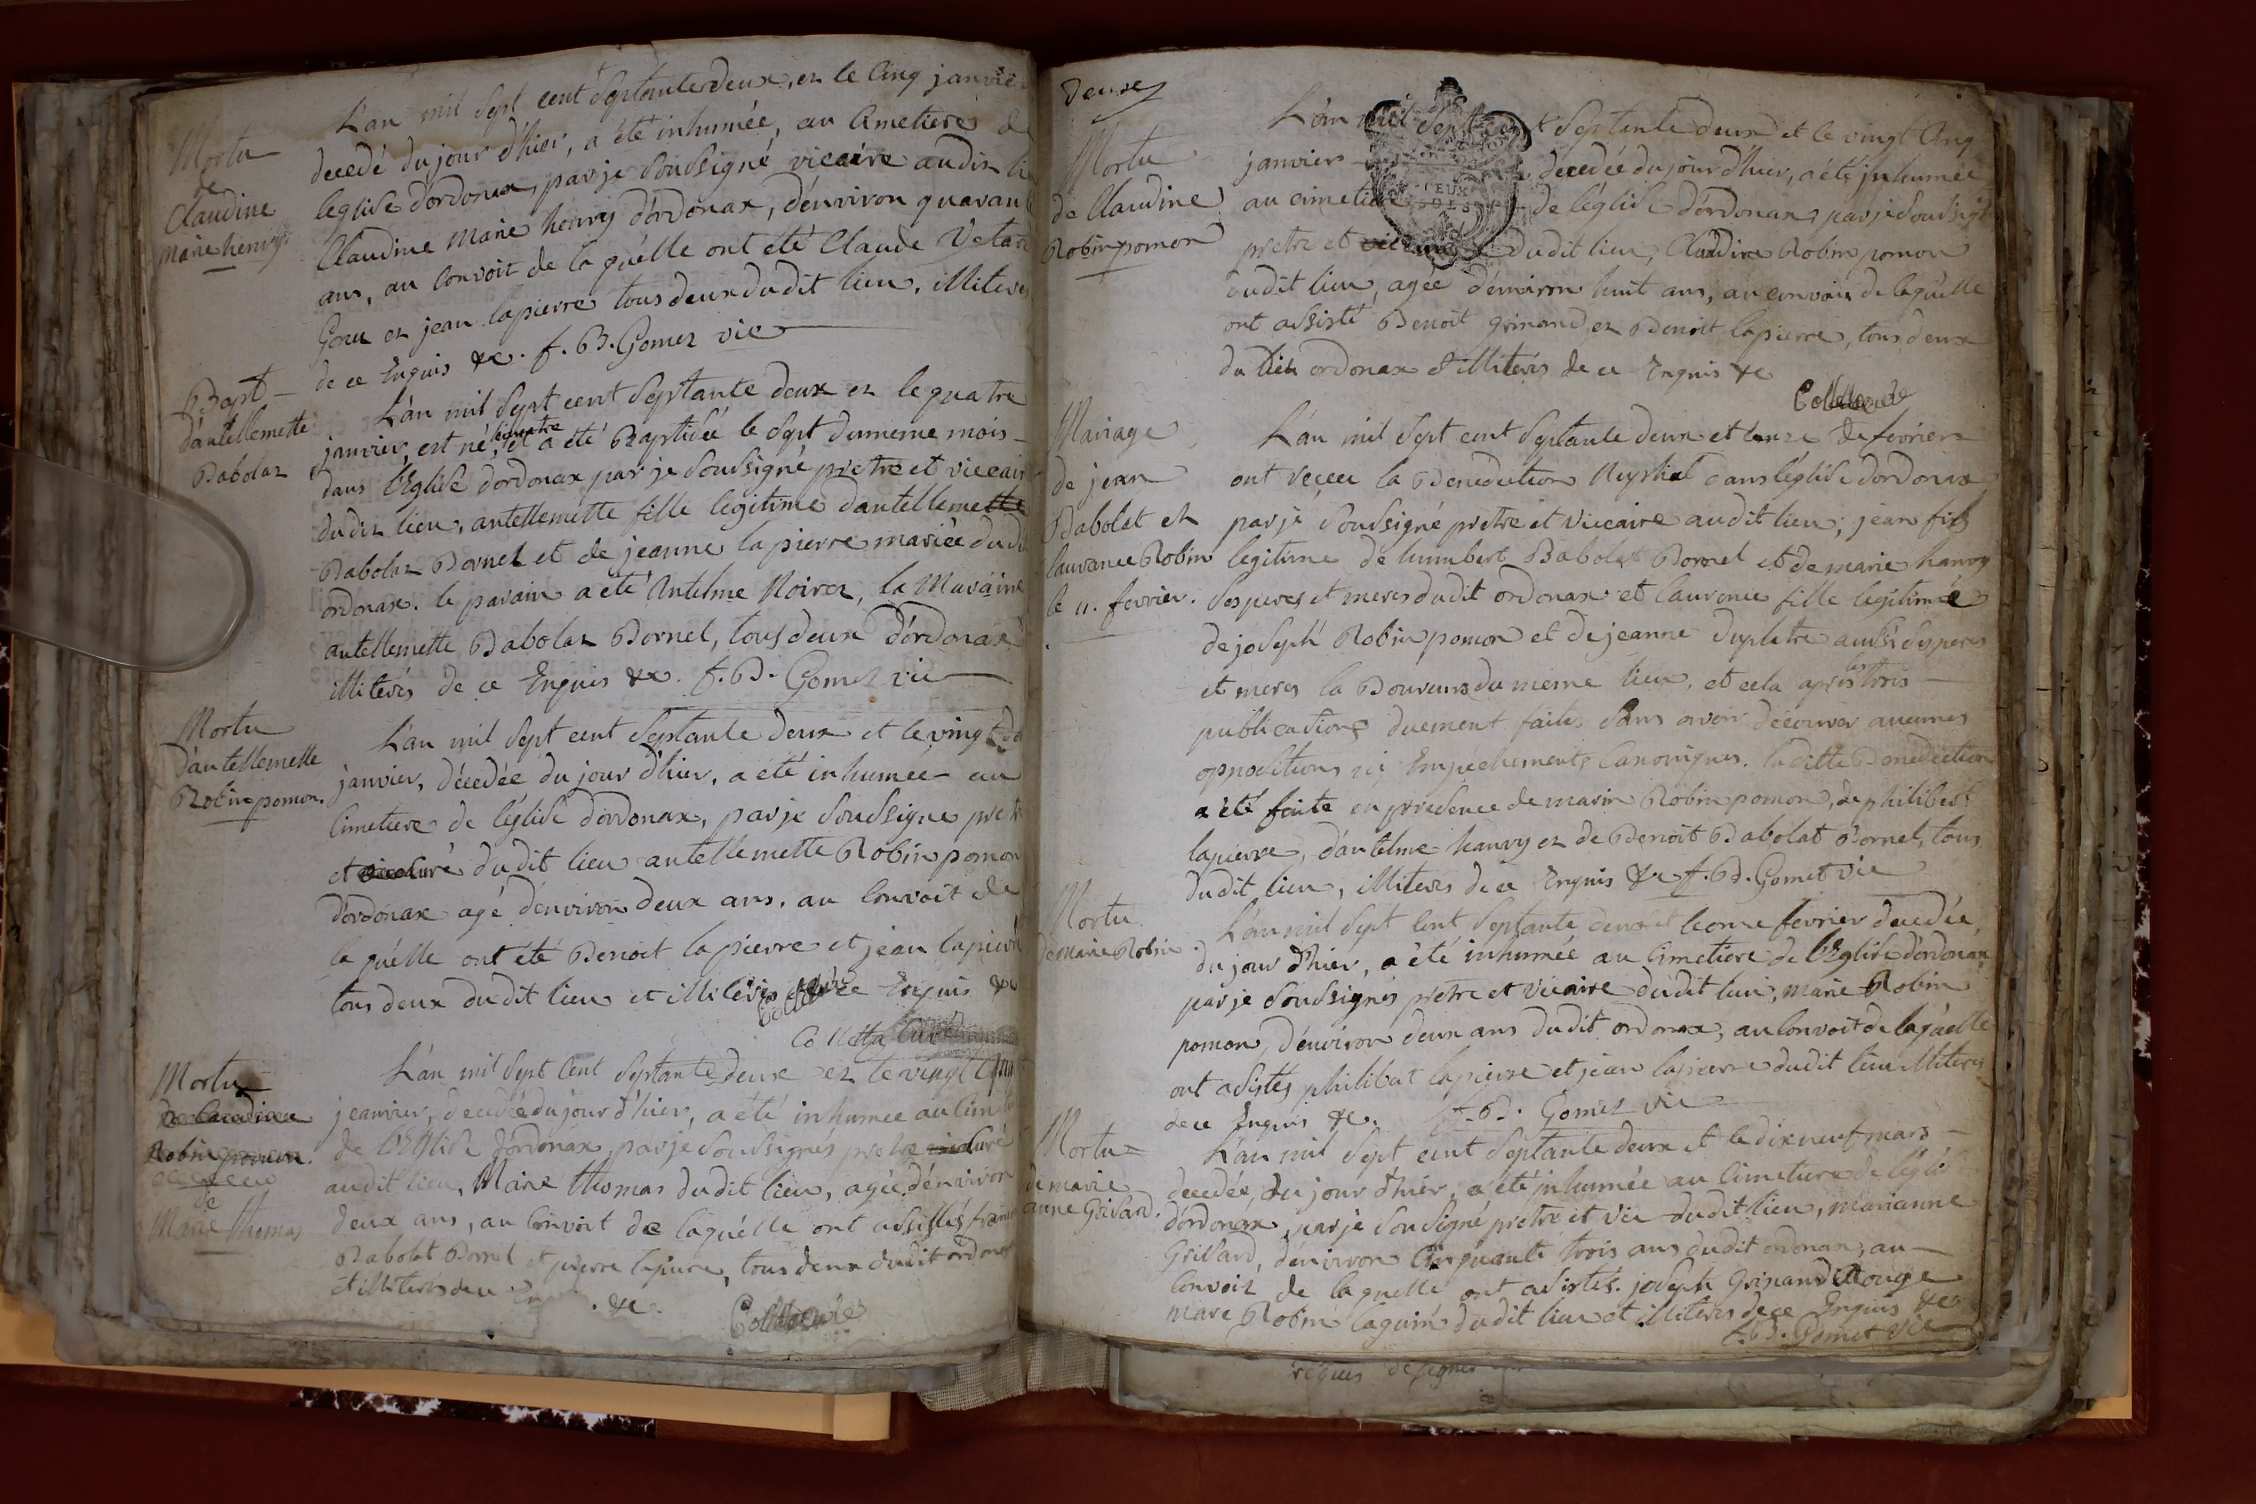 Mortu
de
Claudine
marie henry
L'an mil sept cent septante deux, et le cinq janvier
decedé du jour d'hier, a été inhumée, au Cimetiere de
l'eglise d'ordonax, par je soussigné vicaire audit lieu
Claudine marie henry d'ordonax, d'environ quarante
ans, au Convoit de la quelle ont été Claude
et jean lapierre tous deux dudit lieu, illiterés
de ce Enquis &c. f. B. Gomet vic
Bapt
d'antellemette
Babolat
L'an mil sept cent septante deux et le quatre
janvier, est né, et a été Baptisée le sept du meme mois
dans l'Eglise d'ordonax par je soussigné pretre et viccaire
dudit lieu, antellemette fille legitime d'antelleme
Babolat Bornet et de jeanne lapierre mariée dudit
ordonax. le parain a été Antelme Noiret, la Maraine
antellemette Babolat Bornet, tous deux d'ordonax
illiterés de ce Enquis &c. f. B. Gomet vic
Mortu
d'antellemette
Robin pomon.
L'an mil sept cent septante deux et le vingt
janvier, décedée du jour d'hier, a été inhumée au
Cimetiere de l'église d'ordonax, par je soussigne pretre
et curé dudit lieu antellemette Robin pomon
d'ordonax agé d'environ deux ans, au Convoit de
la quelle ont été Benoit lapierre et jean lapierre
tous deux dudit lieu et illiterés de ce Enquis &c
Colletta curé
Mortu
de
Marie thomas
L'an mil sept cent septante deux et le vingt cinq
jeanvier, decedée du jour d'hier, a été inhumée au Cim
de l'Eglise d'ordonax par je soussignés pretre curé
audit lieu, Marie thomas dudit lieu, agée d'environ
deux ans, au Convoit de laquelle ont assistés
Babolat Bornet et pierre lapierre, tous deux dudit ordonax
et illiterés de ce &c.
deuse
Mortu
de Claudine
Robin pomon
L'an mil sept cent septante deux et le vingt cinq
janvier decedée du jour d'hier, a été inhumée
au cimetiere de l'église d'ordonax, par je soussigné
pretre et dudit lieu, Claudine Robin pomon
dudit lieu, agée d'environ huit ans, au convoit de laquelle
ont assisté Benoit grinand et Benoit lapierre, tous deux
du lieu ordonax & illiterés de ce Enquis &c
Mariage
de jean
Babolat et
laurance Robin
le 11. fevrier.
L'an mil sept cent septante deux et l'onze de fevrier
ont reçeu la Benediction Nuptial dans l'église d'ordonax
par je soussigné pretre et viccaire audit lieu, jean fils
legitime de humbert Babolat Bornet et de marie hanry
ses peres et meres dudit ordonax et laurence fille legitimée
de joseph Robin pomon et de jeanne duplatre aussi ses peres
et meres la Bouvens du meme lieu, et cela apres les trois
publications duement faite sans avoir découver aucunes
oppositions ni Empechements Canoniques. laditte Benediction
a été faite en presence de marin Robin pomon, de philibert
lapierre, d'antelme hanry et de Benoit Babolat Bornet, tous
dudit lieu, illiterés de ce Enquis &c f. B. Gomet vic
Mortu
de Marie Robin
L'an mil sept cent septante deux et le onze fevrier decedée
du jour d'hier, a été inhumée au Cimetiere de l'Eglise d'ordonax
par je soussignés pretre et vicaire dudit lieu, marie Robin
pomon, d'environ deux ans dudit ordonax, au Convoit de laquelle
ont assistés philibert lapierre et jean lapierre dudit lieu illiterés
de ce Enquis &c. f. B. Gomet vic
Mortu
de marie
anne Grilard.
L'an mil sept cent septante deux et le dix neuf mars
decedée, du jour d'hier, a été inhumée au Cimetiere de l'église
d'ordonax, par je soussigné pretre et vic dudit lieu, marianne
Grillard, d'environ Cinquante trois ans dudit ordonax, au
Convoit de laquelle ont assistés joseph Grinand Rouge
marc Robin dudit lieu et illiterés de ce Enquis &c
f. B. Gomet vic